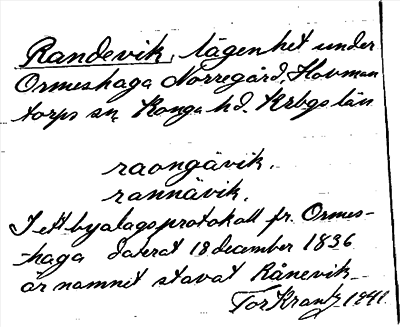 Randevik, lägenhet under
Ormeshaga Norregård, Hovman
torps sn Konga hd. Krbgs län
raongävik.
rannävik.
I ett byalagsprotokoll fr. Ormes-
haga daterat 18 december 1836
är namnet stavat Rånevik
Tor Krantz 1941.